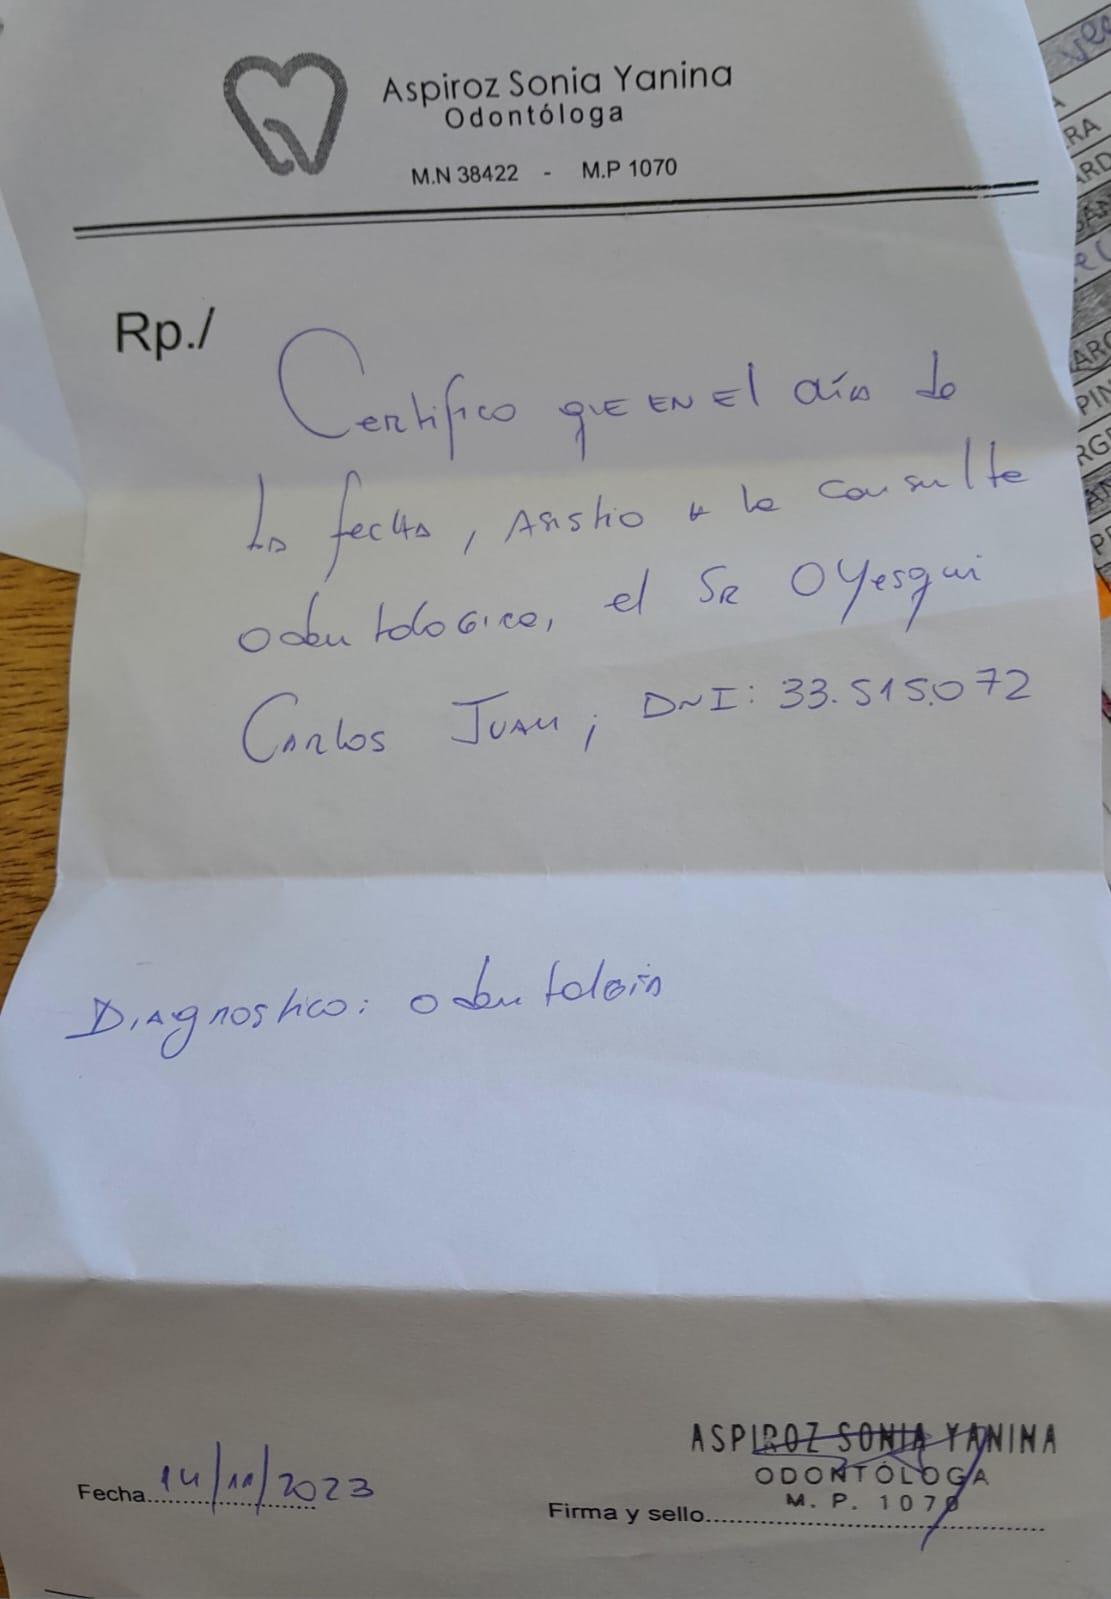 Aspiroz Sonia Yanina
Odontóloga
M.N 38422 - M.P 1070
Rp./
Certifico que en el día de
la fecha, asistio a la consulta
odontologica, el Sr Oyesqui
Carlos Juan, DNI: 33.515.072
Diagnostico: odontologia
Fecha 14/11/2023
ASPIROZ SONIA YANINA
ODONTÓLOGA
M. P. 1070
Firma y sello
RA
ARD
ARG
PIN
RGE